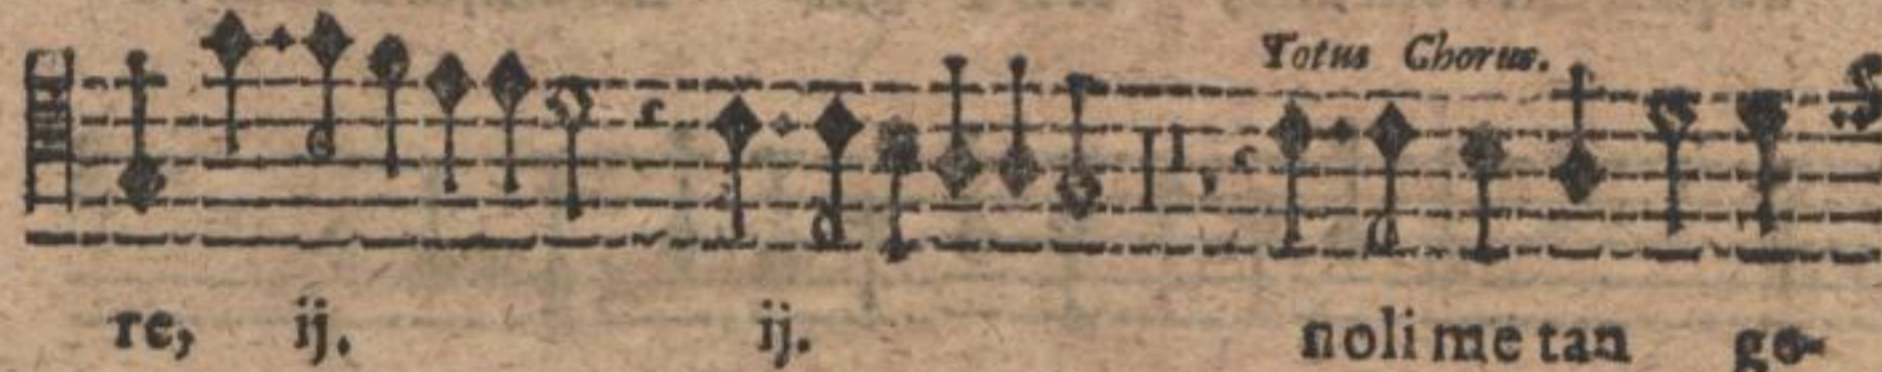 Totus Chorus.
re, ij. ij. noli me tan ge-